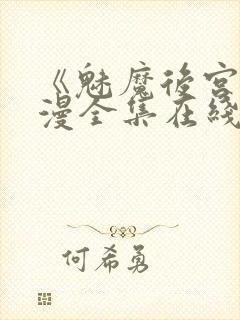 《魅魔後宮
漫全集在綫
何希勇